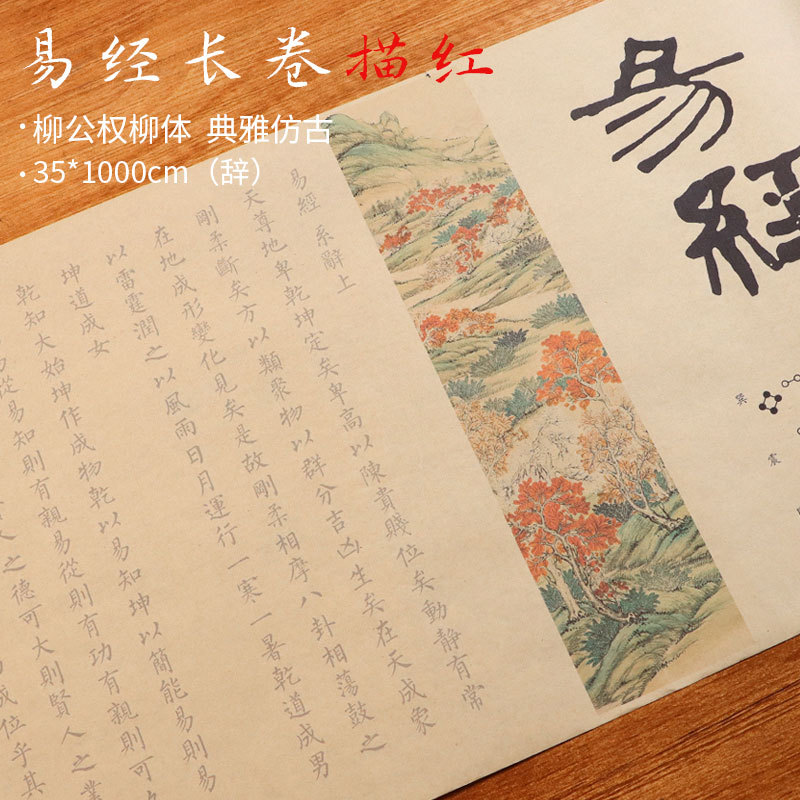 易经长卷描红
·柳公权柳体 典雅仿古
·35*1000cm（辞）
易經
巽
震
易經 系辭上
天尊地卑乾坤定矣卑高以陳貴賤位矣動靜有常
剛柔斷矣方以類聚物以群分吉凶生矣在天成象
在地成形變化見矣是故剛柔相摩八卦相蕩鼓之
以雷霆潤之以風雨日月運行一寒一暑乾道成男
坤道成女
乾知大始坤作成物乾以易知坤以簡能易則易
易從易知則有親易從則有功有親則可
人之德可大則賢人之業
成位乎其